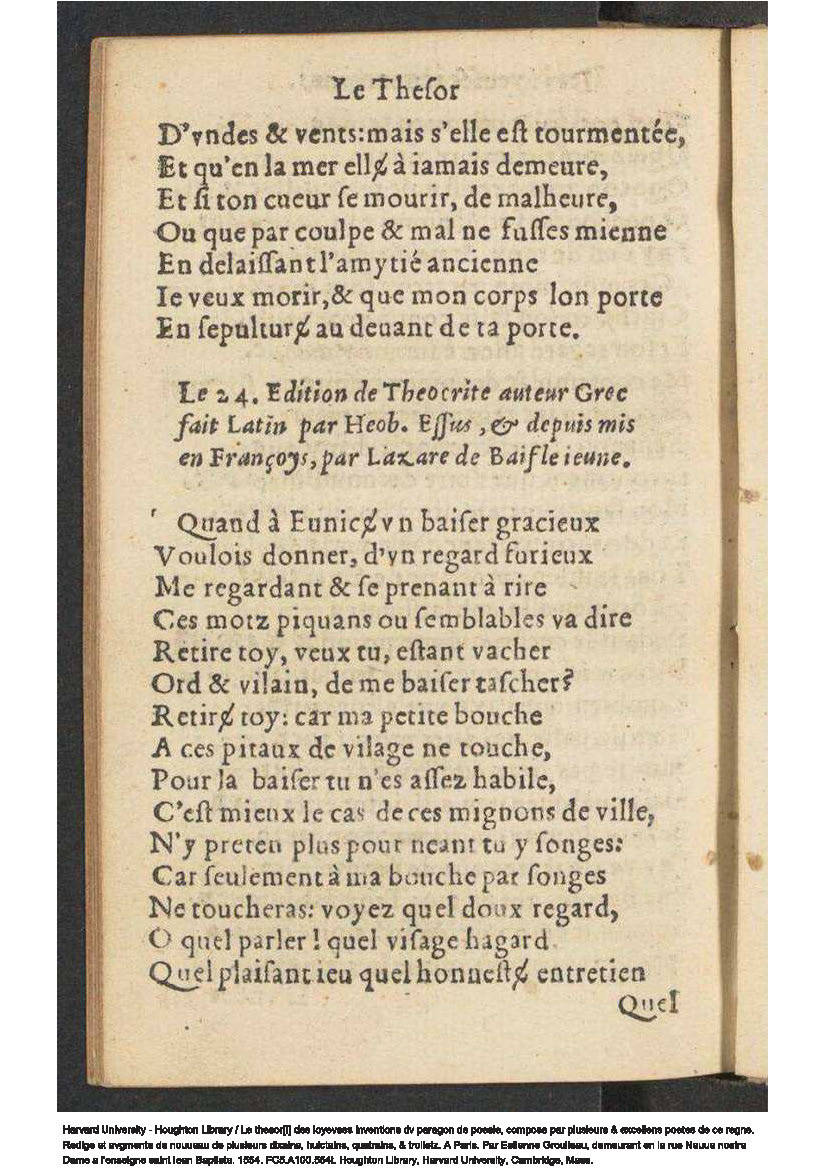 Le Theſor
D'vndes & vents:mais s'elle eſt tourmentée,
Et qu'en la mer ellɇ à iamais demeure,
Et ſi ton cueur ſe mourir, de malheure,
Ou que par coulpe & mal ne fuſſes mienne
En delaiſſant l'amytié ancienne
Ie veux morir,& que mon corps lon porte
En ſepulturɇ au deuant de ta porte.
Le 24. Edition de Theocrite auteur Grec
fait Latin par Heob. Eſſus ,& depuis mis
en Françoys, par Lazare de Baif le ieune.
Quand à Eunicɇ vn baiſer gracieux
Voulois donner, d'vn regard furieux
Me regardant & ſe prenant à rire
Ces motz piquans ou ſemblables va dire
Retire toy, veux tu, eſtant vacher
Ord & vilain, de me baiſer taſcher?
Retirɇ toy: car ma petite bouche
A ces pitaux de vilage ne touche,
Pour la baiſer tu n'es aſſez habile,
C'eſt mieux le cas de ces mignons de ville,
N'y preten plus pour neant tu y ſonges:
Car ſeulement à ma bouche par ſonges
Ne toucheras: voyez quel doux regard,
O quel parler ! quel viſage hagard
Quel plaiſant ieu quel honneſtɇ entretien
Quel
Harvard University - Houghton Library / Le thesor[i] des ioyevses inventions dv paragon de poesie, compose par plusieurs & excellens poetes de ce regne.
Redige et avgmente de nouueau de plusieurs dixains, huictains, quatrains, & trolletz. A Paris. Par Estienne Groulleau, demeurant en la rue Neuue nostre
Dame a l'enseigne saint Iean Baptiste. 1554. FC5.A100.554t. Houghton Library, Harvard University, Cambridge, Mass.